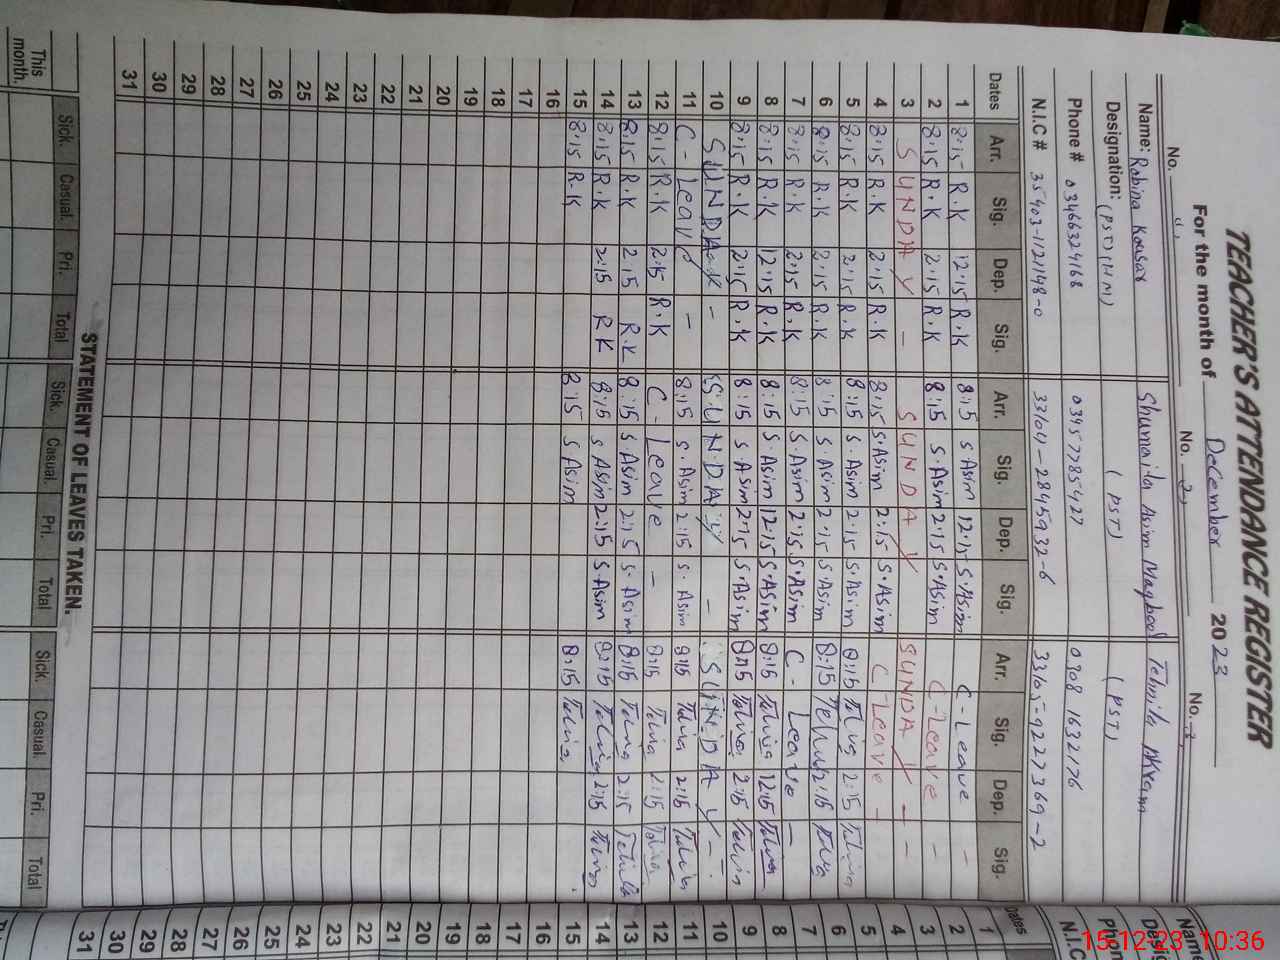 TEACHER'S ATTENDANCE REGISTER
For the month of December 2023
No. 1, No. 2, No. 3,
Name: Robina Kousar Shumaila Asim Maqbool Tehmila Akram
Designation: (PST) (HM) (PST) (PST)
Phone # 03466324168 03457785427 0308 1632176
N.I.C # 35403-1121148-0 33104-2845932-6 33105-9227369-2
Dates Arr. Sig. Dep. Sig. Arr. Sig. Dep. Sig. Arr. Sig. Dep. Sig.
1 8:15 R.K 12:15 R.K 8:15 S Asim 12:15 S.Asim C-Leave -
2 8:15 R.K 2:15 R.K 8:15 S.Asim 2:15 S.Asim C-Leave -
3 SUNDAY - SUNDAY SUNDAY - -
4 8:15 R.K 2:15 R.K 8:15 S.Asim 2:15 S.Asim C-Leave -
5 8:15 R.K 2:15 R.K 8:15 S.Asim 2:15 S.Asim 8:15 2:15
6 8:15 R.K 2:15 R.K 8:15 S.Asim 2:15 S.Asim 8:15 2:15
7 8:15 R.K 2:15 R.K 8:15 S.Asim 2:15 S.Asim C- Leave -
8 8:15 R.K 12:15 R.K 8:15 S.Asim 12:15 S.Asim 8:15 12:15
9 8:15 R.K 2:15 R.K 8:15 S Asim 2:15 S.Asim 8:15 2:15
10 SUNDAY - SUNDAY - SUNDAY -
11 C-Leave - 8:15 S.Asim 2:15 S.Asim 8:15 2:15
12 8:15 R.K 2:15 R.K C-Leave - 8:15 2:15
13 8:15 R.K 2:15 R.K 8:15 S Asim 2:15 S.Asim 8:15 2:15
14 8:15 R.K 2:15 R K 8:15 S Asim 2:15 S.Asim 8:15 2:15
15 8:15 R.K 8:15 S Asim 8:15
16
17
18
19
20
21
22
23
24
25
26
27
28
29
30
31
STATEMENT OF LEAVES TAKEN.
Sick. Casual. Pri. Total Sick. Casual. Pri. Total Sick. Casual. Pri. Total
This month.
Name
Desig
Pho
N.I.C
Dates
1
2
3
4
5
6
7
8
9
10
11
12
13
14
15
16
17
18
19
20
21
22
23
24
25
26
27
28
29
30
31
15-12-23 10:36